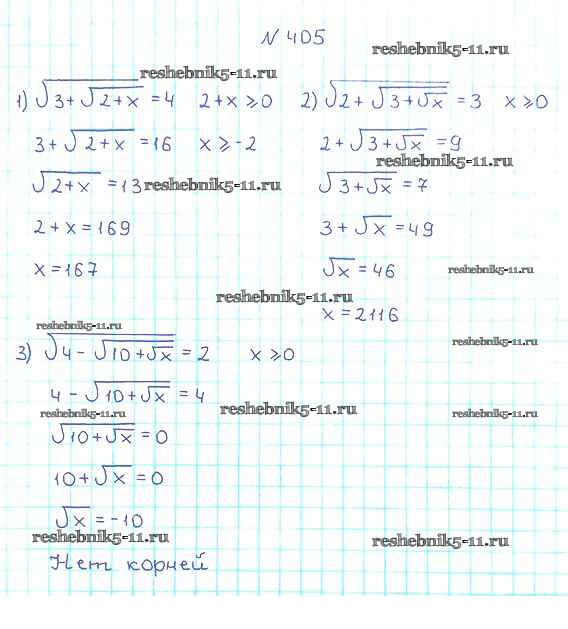 N 405
reshebnik5-11.ru
reshebnik5-11.ru
1) √(3+√(2+x)) = 4   2+x ≥ 0
3+√(2+x) = 16   x ≥ -2
√(2+x) = 13 reshebnik5-11.ru
2+x = 169
x = 167
2) √(2+√(3+√x)) = 3   x ≥ 0
2+√(3+√x) = 9
reshebnik5-11.ru
√(3+√x) = 7
3+√x = 49
√x = 46
reshebnik5-11.ru
reshebnik5-11.ru
x = 2116
reshebnik5-11.ru
reshebnik5-11.ru
3) √(4-√(10+√x)) = 2   x ≥ 0
4-√(10+√x) = 4
reshebnik5-11.ru
reshebnik5-11.ru
reshebnik5-11.ru
√(10+√x) = 0
10+√x = 0
√x = -10
reshebnik5-11.ru
reshebnik5-11.ru
Нет корней